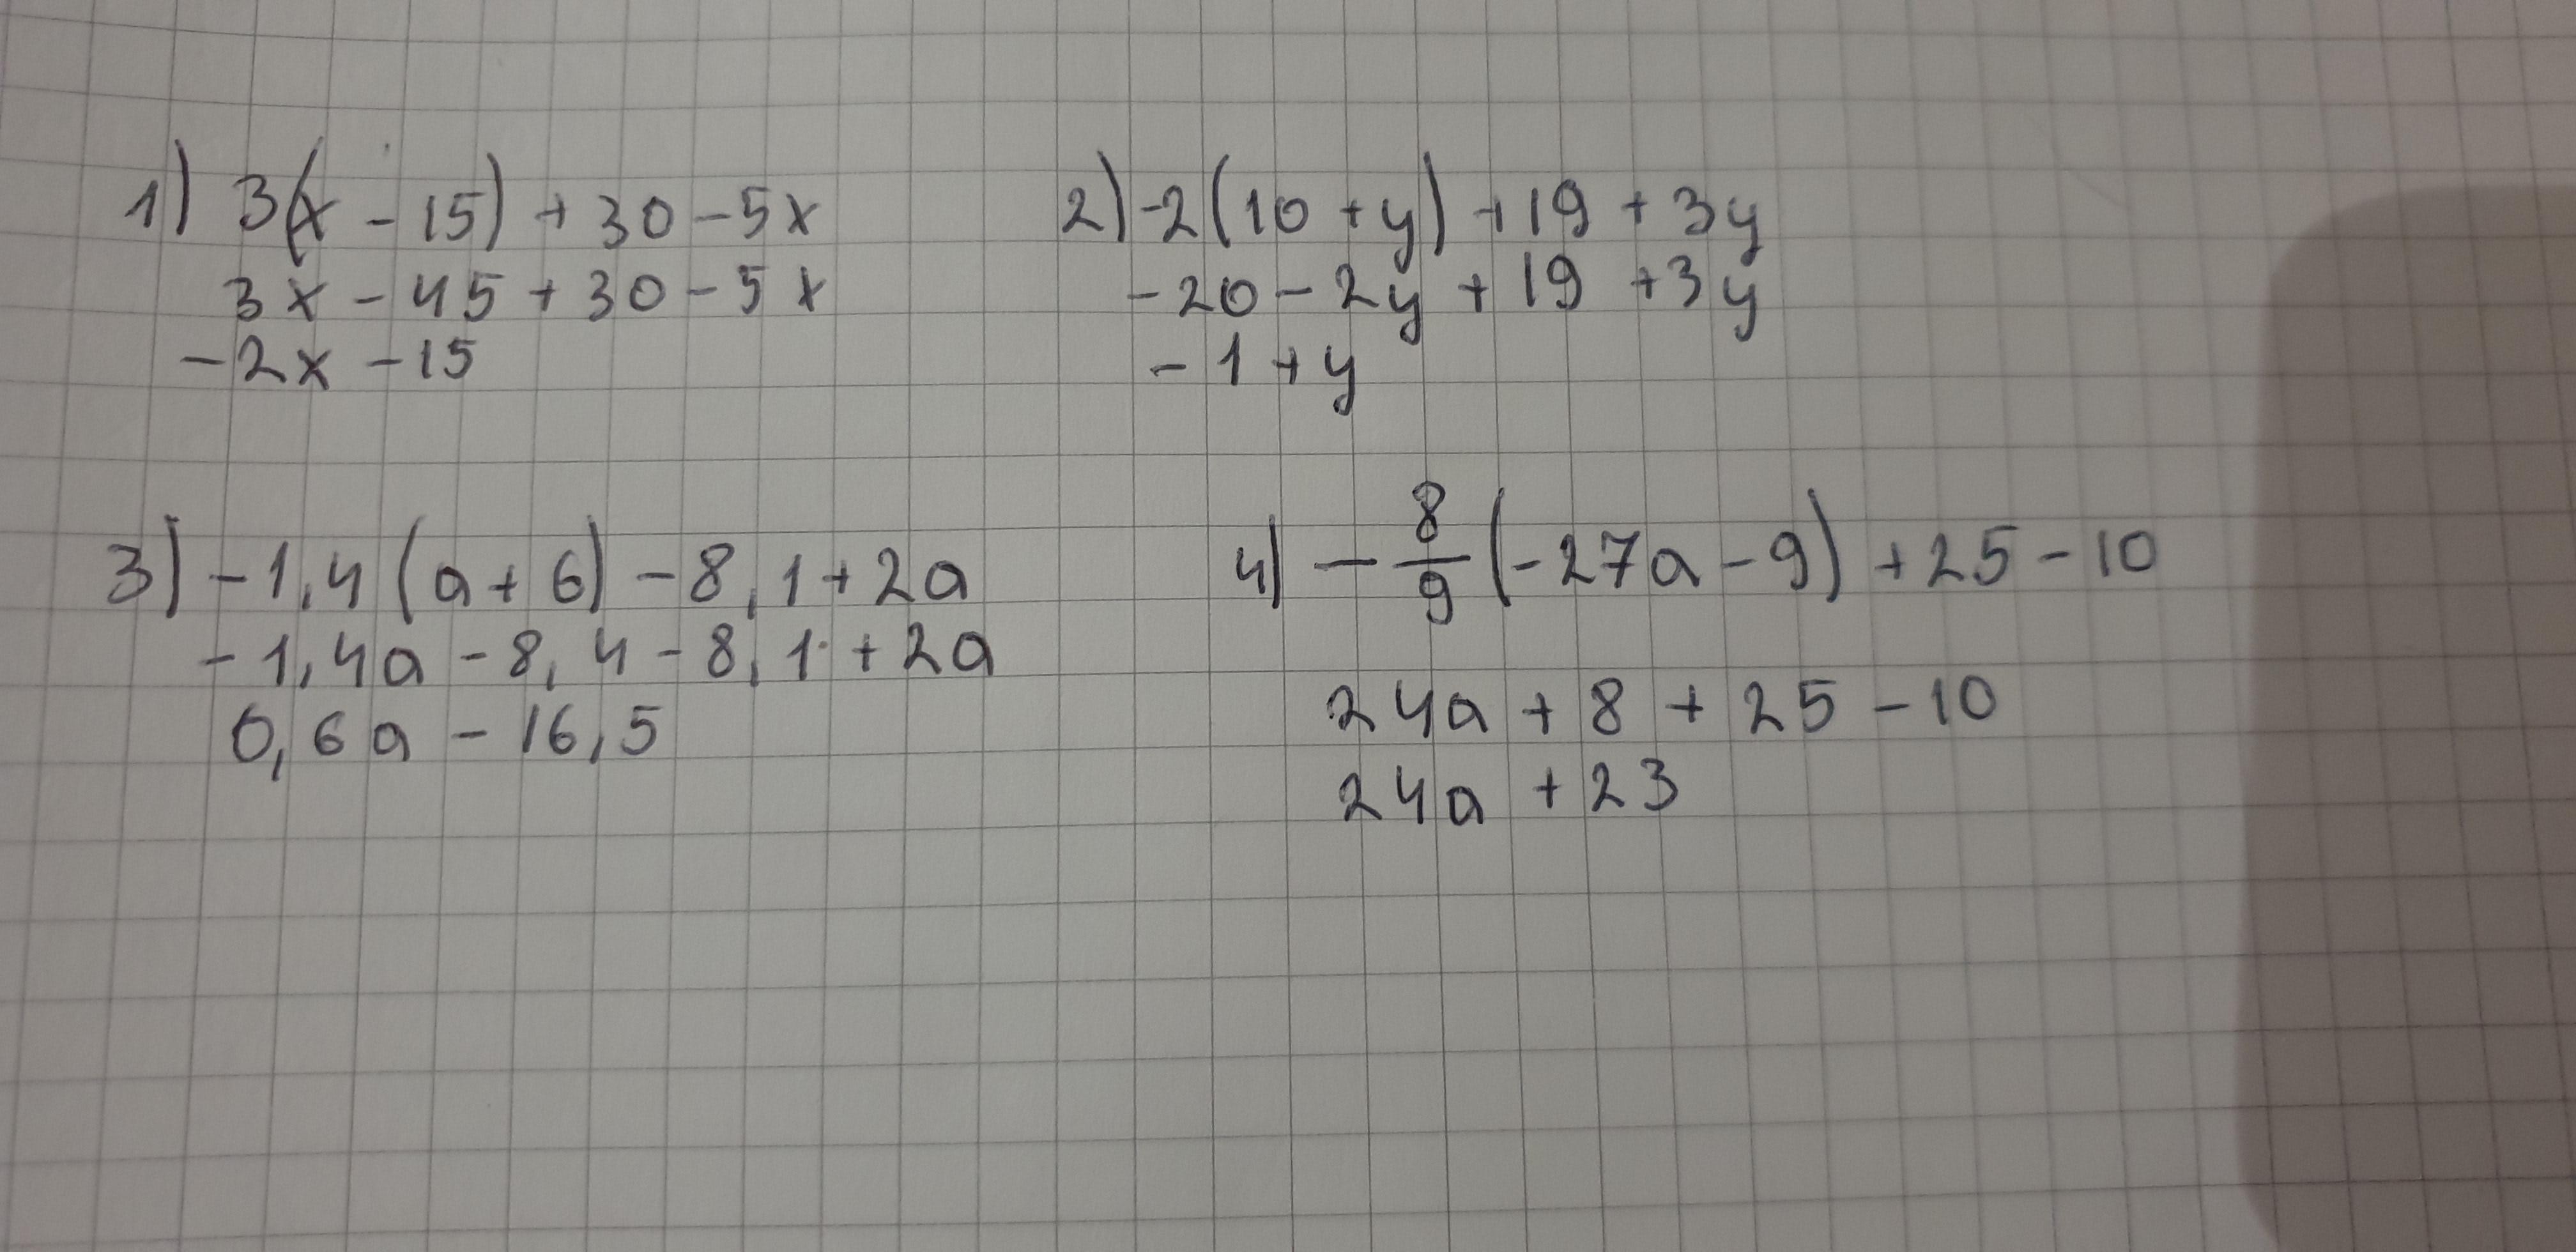 1) 3(x - 15) + 30 - 5x
3x - 45 + 30 - 5x
- 2x - 15
2) -2(10 + y) + 19 + 3y
- 20 - 2y + 19 + 3y
- 1 + y
3) - 1,4 (a + 6) - 8,1 + 2a
- 1,4a - 8,4 - 8,1 + 2a
0,6a - 16,5
4) - 8/9 (-27a - 9) + 25 - 10
24a + 8 + 25 - 10
24a + 23